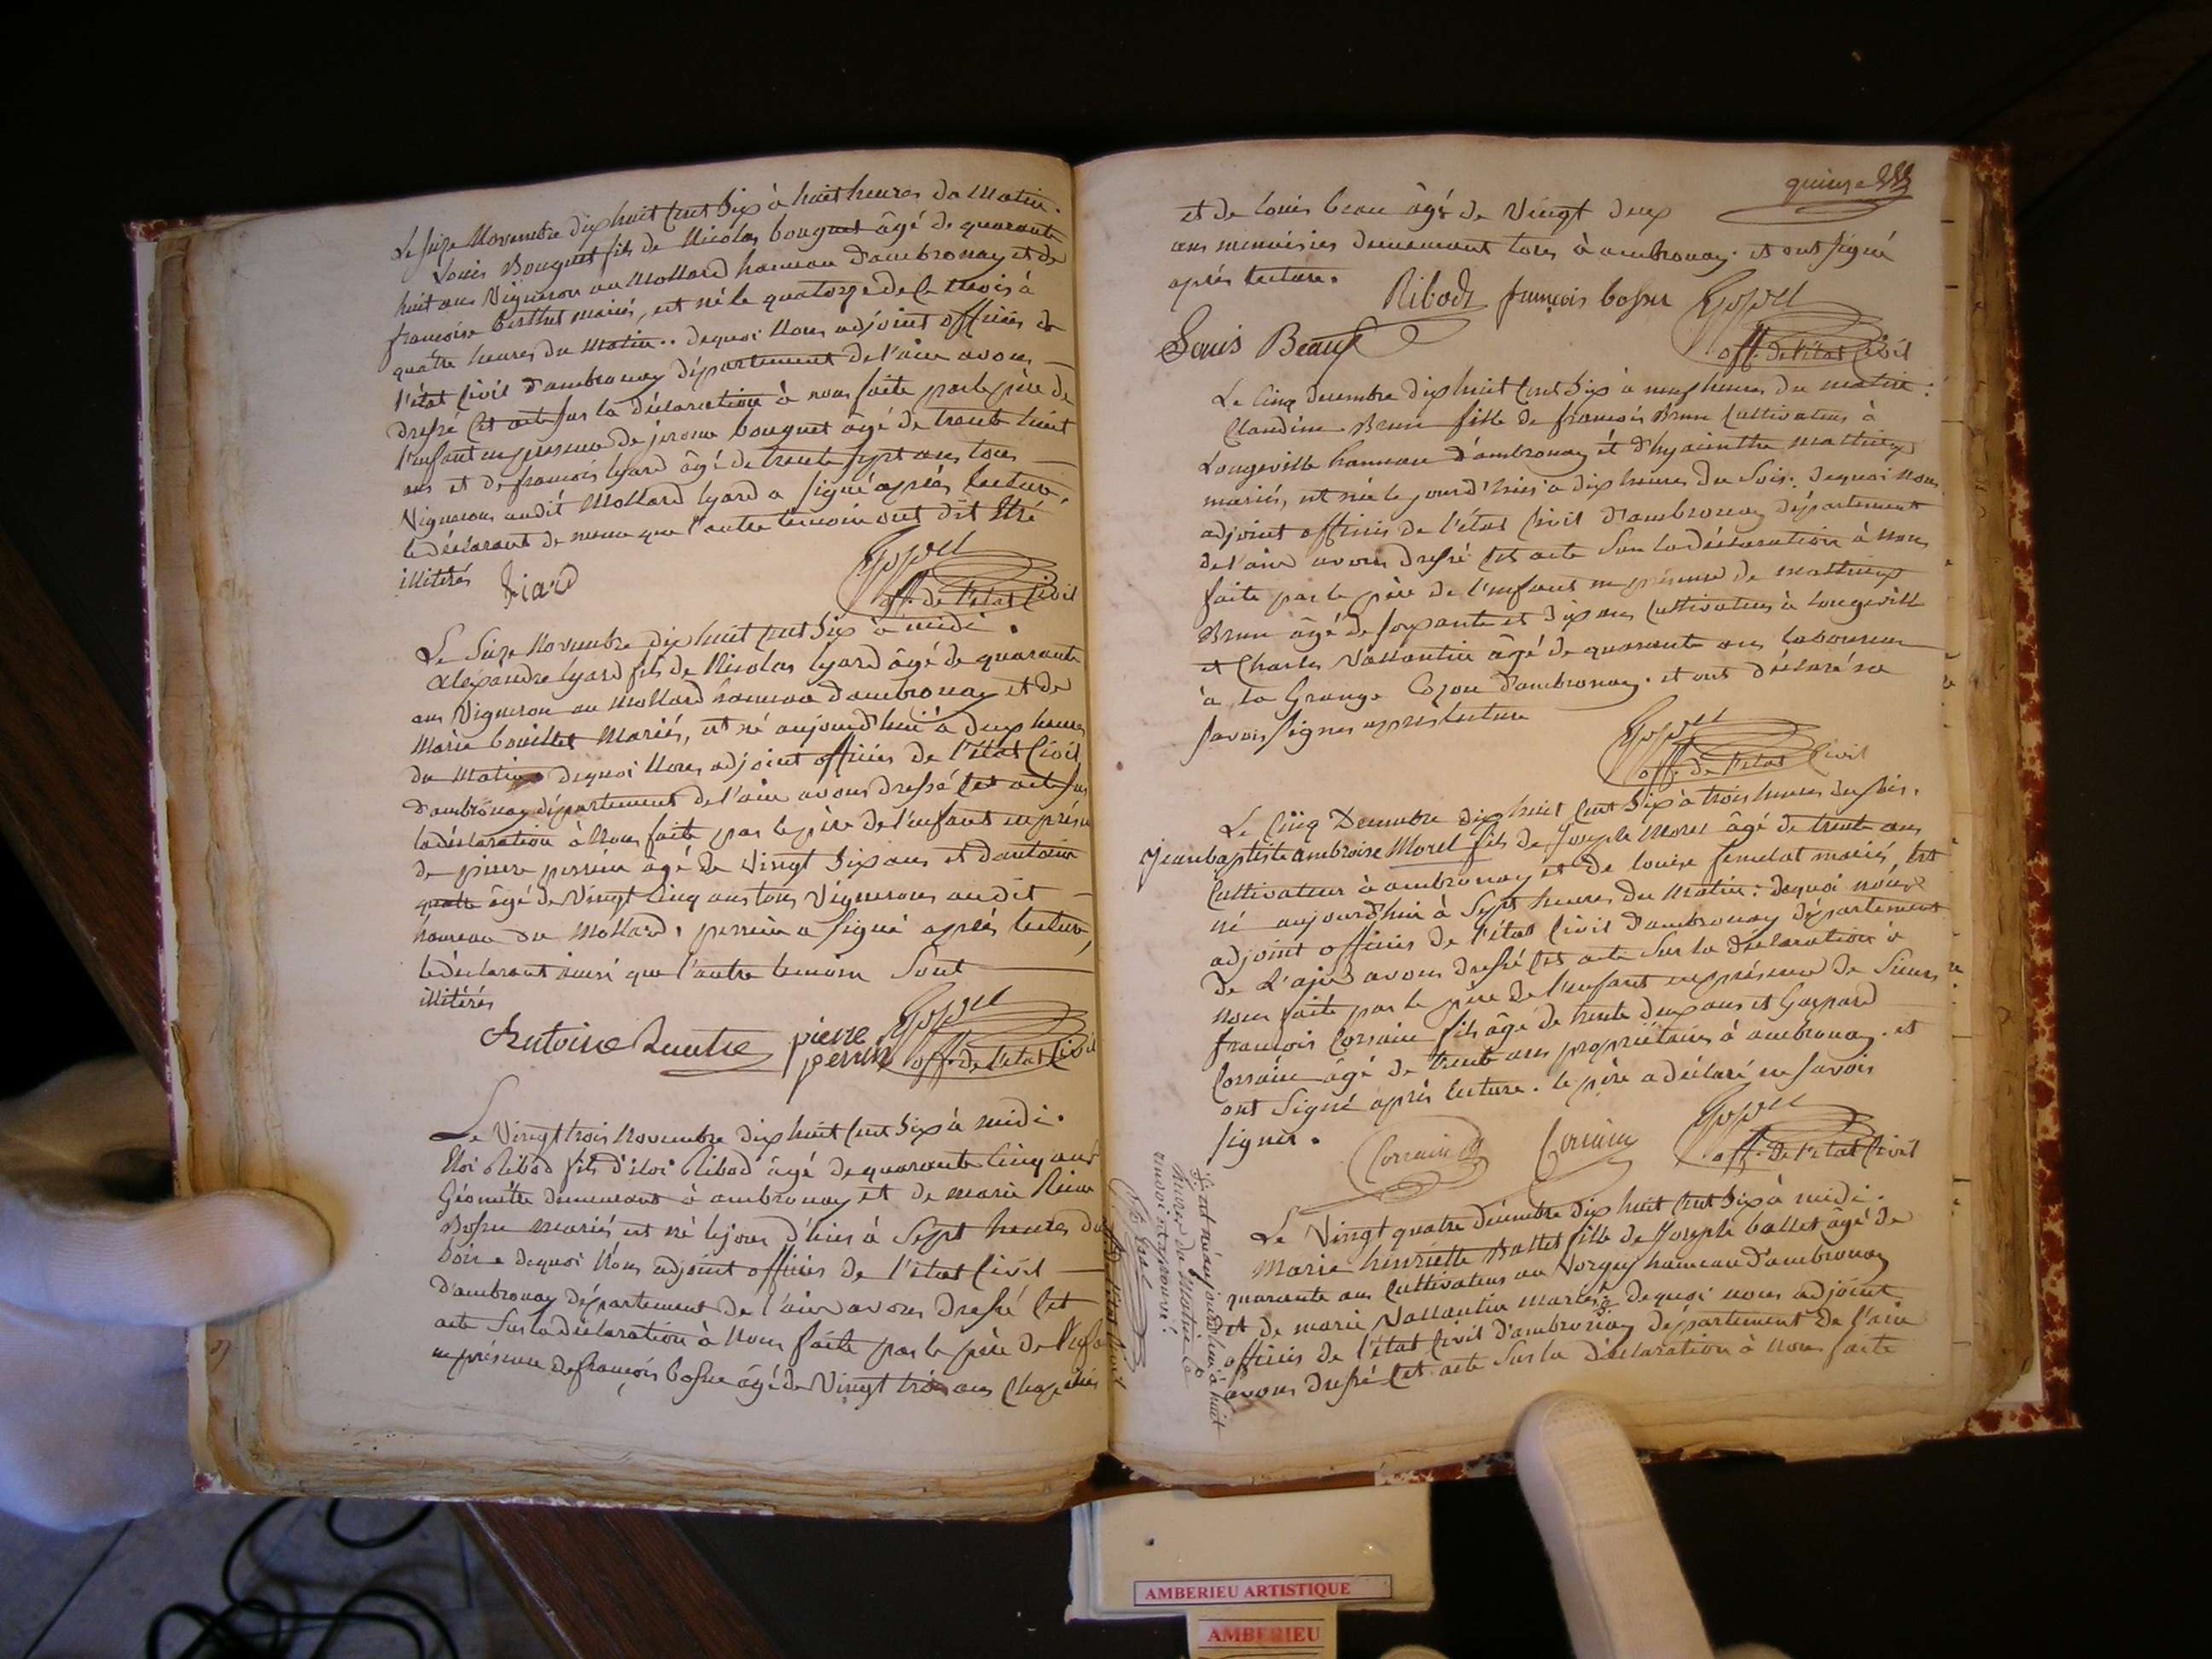 Le seize Novembre dix huit cent six à huit heures du Matin.
Louis Bouquet fils de Nicolas bouquet âgé de quarante
huit ans Vigneron au Mollard hameau d'ambronay et de
francoise berthet mariés, est né le quatorze de ce mois à
quatre heures du Matin. dequoi Nous adjoint officier de
l'état Civil d'ambronay département de l'ain avons
dressé cet acte sur la déclaration à nous faite par le père de
l'enfant en presence de jerome bouquet âgé de trente huit
ans et de francois lyard âgé de trente sept ans tous
Vignerons audit Mollard lyard a signé après lecture,
le déclarant de meme que l'autre temoin ont dit être
illitérés
liard
off. de l'état Civil
Le Seize Novembre dix huit cent six à midi.
Alexandre lyard fils de Nicolas lyard âgé de quarante
ans Vigneron au Mollard hameau d'ambronay et de
Marie bouillet Mariés, est né aujourd'hui à deux heures
du Matin dequoi Nous adjoint officier de l'état Civil
d'ambronay département de l'ain avons dressé cet acte sur
la déclaration à Nous faite par le père de l'enfant en présen
de pierre perrin âgé de Vingt six ans et d'antoine
âgé de Vingt cinq ans tous Vignerons audit
hameau du Mollard, perrin a signé après lecture,
le déclarant ainsi que l'autre temoin Sont
illitérés
Antoine pierre
perrin off. de l'état Civil
Le Vingt trois Novembre dix huit cent six à midi.
Eloi Ribod fils d'éloi Ribod âgé de quarante cinq ans
Géomètre demeurant à ambronay et de marie Reine
Bossu mariés est né le jour d'hier à Sept heures du
Soir dequoi Nous adjoint officier de l'état Civil
d'ambronay département de l'ain avons dressé cet
acte Sur la déclaration à Nous faite par le père de l'enfa
en présence de françois bossu âgé de Vingt trois ans
quinze
et de louis beau âgé de Vingt deux
ans menuisier demeurant tous à ambronay. et ont signé
après lecture.
Ribod françois bossu
Louis Beau
off. de l'état Civil
Le Cinq decembre dix huit cent six à neuf heures du matin:
Claudine Brun fille de francois Brun Cultivateur à
Longeville hameau d'ambronay et d'hyacinthe mathieu
mariés, est née le jour d'hier à dix heures du Soir. dequoi nous
adjoint officier de l'état Civil d'ambronay département
de l'ain avons dressé cet acte Sur la déclaration à Nous
faite par le père de l'enfant en présence de mathieu
Brun âgé de soixante et dix ans Cultivateur à longeville
et Charles Vallantin âgé de quarante ans laboureur
à la Grange d'ambronay. et ont déclaré ne
savoir signer apres lecture
off. de l'état Civil
Le Cinq Decembre dix huit cent six à trois heures du soir.
Jean baptiste ambroise Morel fils de Joseph Morel âgé de trente ans
Cultivateur à ambronay et de louise mariés, est
né aujourd'hui à Sept heures du Matin: dequoi nous
adjoint officier de l'état Civil d'ambronay département
de L'ain avons dressé cet acte Sur la déclaration à
nous faite par le père de l'enfant en présence de Sieurs
françois Corrain fils âgé de trente deux ans et Gaspard
Corrain âgé de trente ans propriétaires à ambronay. et
ont Signé après lecture. le père a déclaré ne savoir
signer.
Corrain Corrain
off. de l'état Civil
Le Vingt quatre décembre dix huit cent six à midi.
Marie henriette Ballet fille de Joseph ballet âgé de
quarante ans Cultivateur au hameau d'ambronay
et de marie Vallantin mariés dequoi nous adjoint
officier de l'état Civil d'ambronay département de l'ain
avons dressé cet acte Sur la déclaration à Nous faite
est née aujourd'hui à huit
heures du Matin le
renvoi approuvé.
AMBERIEU ARTISTIQUE
AMBERIEU